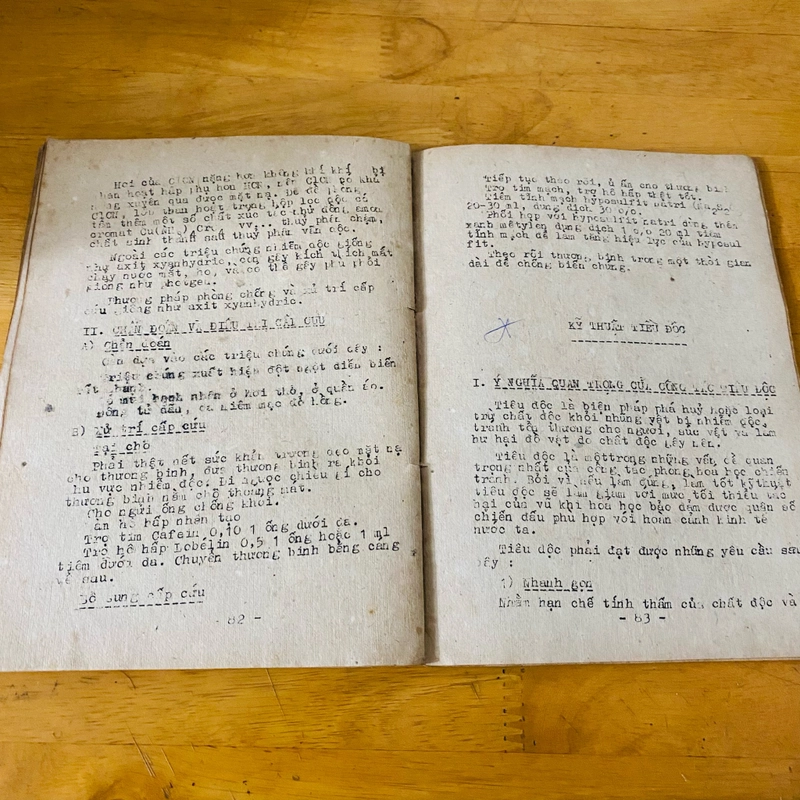 Hơi của ClCN nặng hơn không khí khí bị
than hoạt hấp phụ hơn HCN, nên ClCN có khả
năng xuyên qua được mặt nạ. Để đề phòng
ClCN, lớp than hoạt trong hộp lọc độc có
tẩm thêm một số chất xúc tác như đồng amon
cromat vv... thuỷ phân chậm,
chất sinh thành sau thuỷ phân vẫn độc.
Ngoài các triệu chứng nhiễm độc giống
như axit xyanhydric, còn gây kích thích mắt
chảy nước mắt, ho, và có thể gây phù phổi
giống như photgen.
Phương pháp phòng chống và xử trí cấp
cứu giống như axit xyanhydric.
II. CHẨN ĐOÁN VÀ ĐIỀU TRỊ CẤP CỨU
A) Chẩn đoán
Căn dựa vào các triệu chứng dưới đây :
Triệu chứng xuất hiện đột ngột diễn biến
rất nhanh.
Có mùi hạnh nhân ở hơi thở, ở quần áo.
Đồng tử dãn, da niêm mạc đỏ hồng.
B) Xử trí cấp cứu
Tại chỗ
Phải thật hết sức khẩn trương đeo mặt nạ
cho thương binh, đưa thương binh ra khỏi
khu vực nhiễm độc. Đi ngược chiều gió cho
thương binh nằm chỗ thoáng mát.
Cho ngửi ống chống khói.
hô hấp nhân tạo
Trợ tim Cafein 0,10 1 ống dưới da.
Trợ hô hấp Lobêlin 0,5 1 ống hoặc 1 ml
tiêm dưới da. Chuyển thương binh bằng cáng
về sau.
Bổ sung cấp cứu
- 82 -
Tiếp tục theo rõi, ủ ấm cho thương binh
Trợ tim mạch, trợ hô hấp thật tốt.
Tiêm tĩnh mạch hyposulfit natri
20-30 ml, dung dịch 30 o/o.
Phối hợp với hyposulfit natri dùng thêm
xanh mêtylen dụng dịch 1 o/o 20 ml tiêm
tĩnh mạch để làm tăng hiệu lực của hyposul
fit.
Theo rõi thương binh trong một thời gian
dài để chống biến chứng.
KỸ THUẬT TIÊU ĐỘC
I. Ý NGHĨA QUAN TRỌNG CỦA CÔNG TÁC TIÊU ĐỘC
Tiêu độc là biện pháp phá huỷ hoặc loại
trừ chất độc khỏi những vật bị nhiễm độc,
tránh tổn thương cho người, súc vật và làm
hư hại đồ vật do chất độc gây nên.
Tiêu độc là mộttrong những vấn đề quan
trọng nhất của công tác phòng hoá học chiến
tranh. Bởi vì nếu làm đúng, làm tốt kỹthuật
tiêu độc sẽ làm giảm tới mức tối thiểu tác
hại của vũ khí hoá học bảo đảm được quân số
chiến đấu phù hợp với hoàn cảnh kinh tế
nước ta.
Tiêu độc phải đạt được những yêu cầu sau
đây :
1) Nhanh gọn
Nhằm hạn chế tính thấm của chất độc và
- 83 -